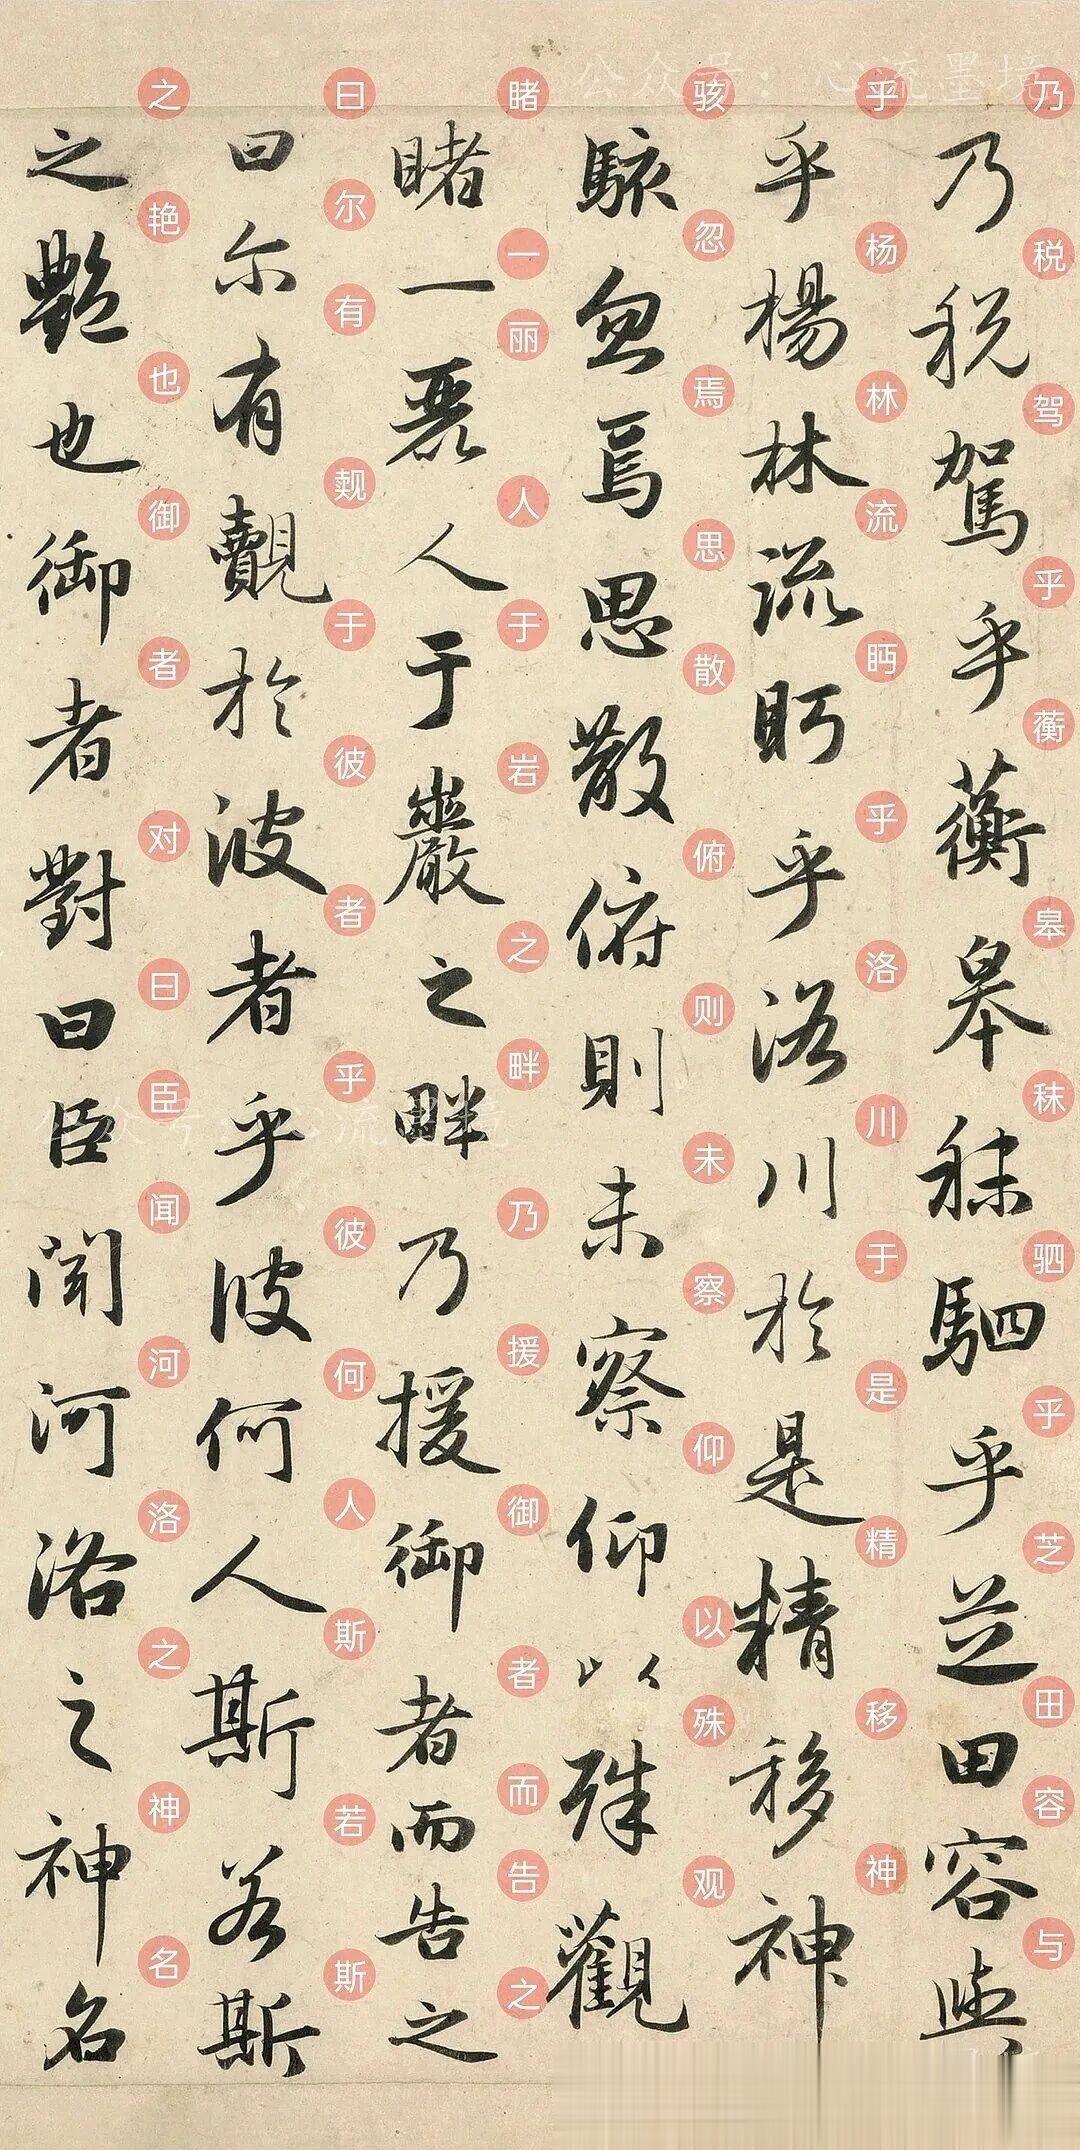 乃税駕乎蘅皋秣駟乎芝田容與
乃税驾乎蘅皋秣驷乎芝田容与
乎楊林流眄乎洛川於是精移神
乎杨林流眄乎洛川于是精移神
駭忽焉思散俯則未察仰以殊觀
骇忽焉思散俯则未察仰以殊观
睹一麗人于巖之畔乃援御者而告之
睹一丽人于岩之畔乃援御者而告之
曰尔有覿於彼者乎彼何人斯若斯
曰尔有觌于彼者乎彼何人斯若斯
之艷也御者對曰臣聞河洛之神名
之艳也御者对曰臣闻河洛之神名
公众号：心流墨境
公众号：心流墨境